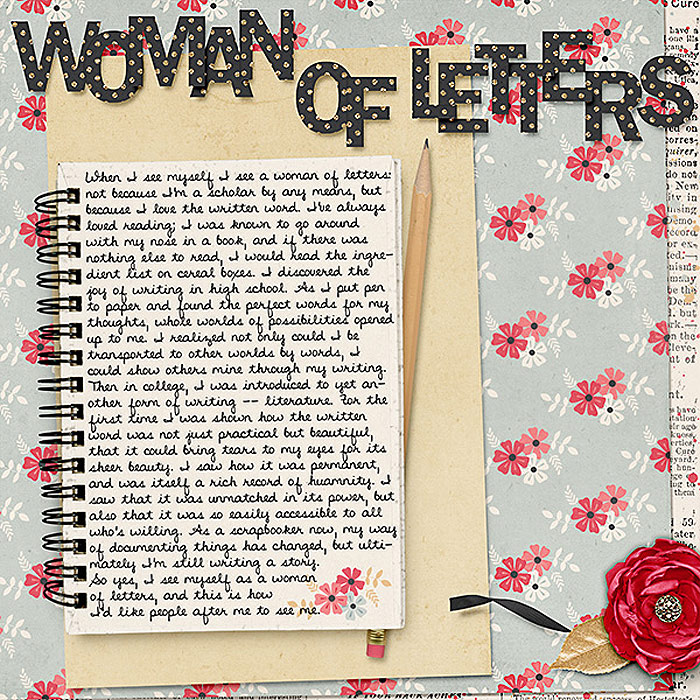 WOMAN
OF LETTERS
When I see myself I see a woman of letters:
not because I'm a scholar by any means, but
because I love the written word. I've always
loved reading; I was known to go around
with my nose in a book, and if there was
nothing else to read, I would read the ingre-
dient list on cereal boxes. I discovered the
joy of writing in high school. As I put pen
to paper and found the perfect words for my
thoughts, whole worlds of possibilities opened
up to me. I realized not only could I be
transported to other worlds by words, I
could show others mine through my writing.
Then in college, I was introduced to yet an-
other form of writing -- literature. For the
first time I was shown how the written
word was not just practical but beautiful,
that it could bring tears to my eyes for its
sheer beauty. I saw how it was permanent,
and was itself a rich record of huamnity. I
saw that it was unmatched in its power, but
also that it was so easily accessible to all
who's willing. As a scrapbooker now, my way
of documenting things has changed, but ulti-
mately I'm still writing a story.
So yes, I see myself as a woman
of letters, and this is how
I'd like people after me to see me.